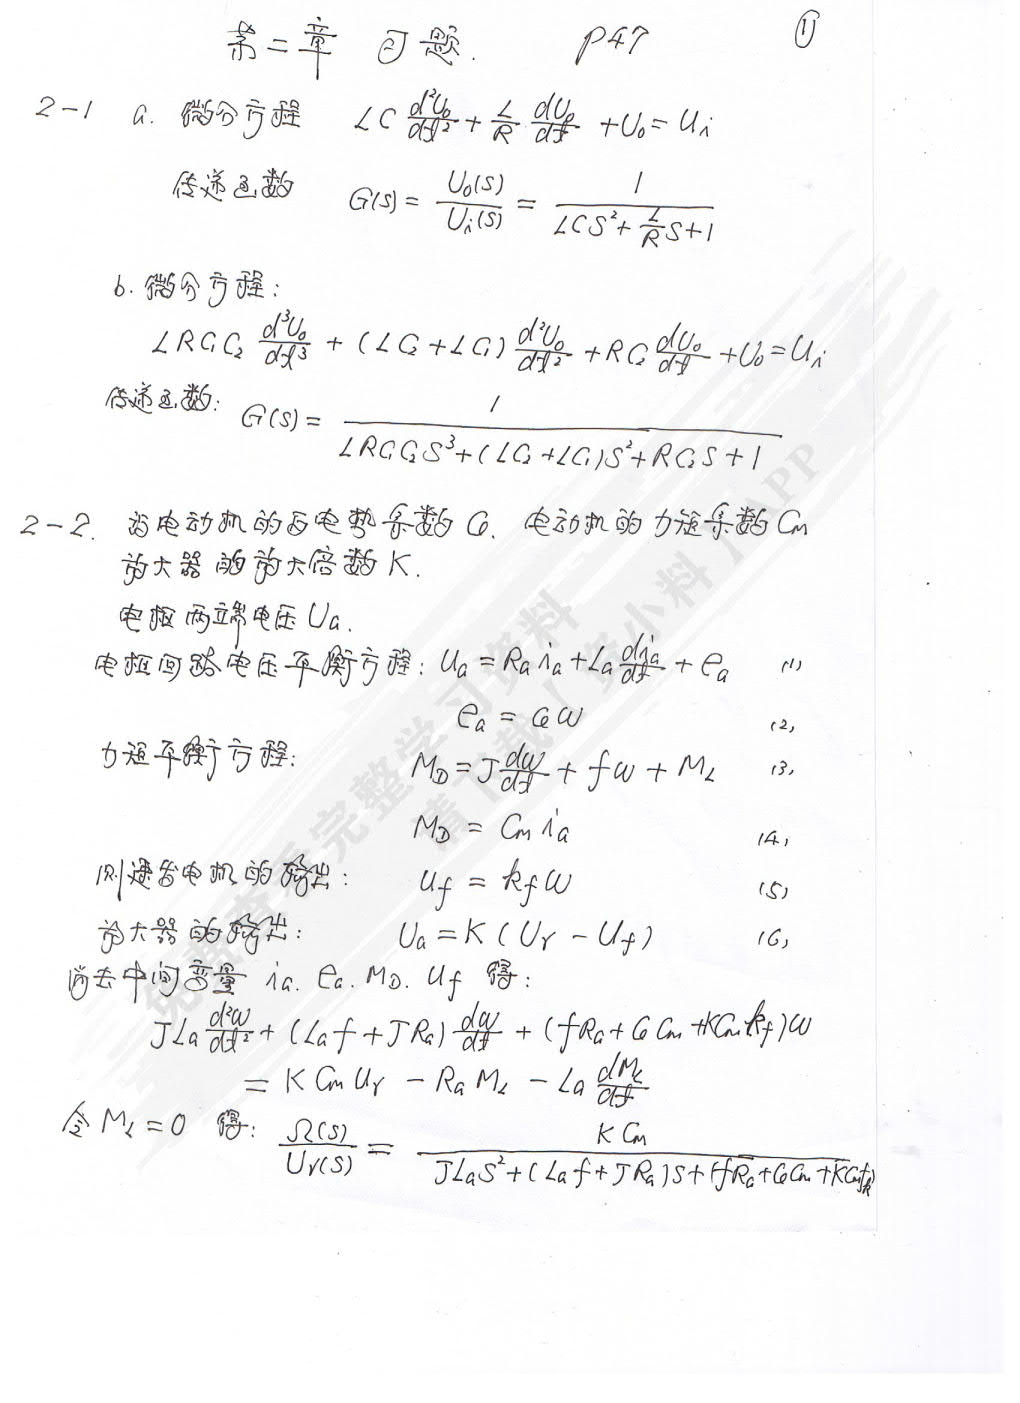 第二章 习题. P47 ①
2-1 a. 微分方程 LC d²U₀/dt² + L/R dU₀/dt + U₀ = Ui
传递函数 G(s) = U₀(s)/Ui(s) = 1/(LCS² + L/R S + 1)
b. 微分方程:
LRC₁C₂ d³U₀/dt³ + (LC₂ + LC₁) d²U₀/dt² + RC₂ dU₀/dt + U₀ = Ui
传递函数: G(s) = 1/(LRC₁C₂S³ + (LC₂ + LC₁)S² + RC₂S + 1)
2-2. 电动机的反电势系数Ce. 电动机的力矩系数Cm
放大器的放大倍数K.
电枢两端电压Ua.
电枢回路电压平衡方程: Ua = Ra ia + La dia/dt + ea (1)
ea = Ce ω (2)
力矩平衡方程: MD = J dω/dt + fω + ML (3)
MD = Cm ia (4)
测速发电机的输出: Uf = kf ω (5)
放大器的输出: Ua = K(Ur − Uf) (6)
消去中间变量 ia. ea. MD. Uf 得:
JLa d²ω/dt² + (La f + JRa) dω/dt + (fRa + CeCm + KCm kf)ω
= K Cm Ur − Ra ML − La dML/dt
令 ML = 0 得: Ω(s)/Ur(s) = K Cm/(JLaS² + (La f + JRa)S + (fRa + CeCm + KCmkf)
免费查看完整学习资料
请下载 / 资小料 / APP